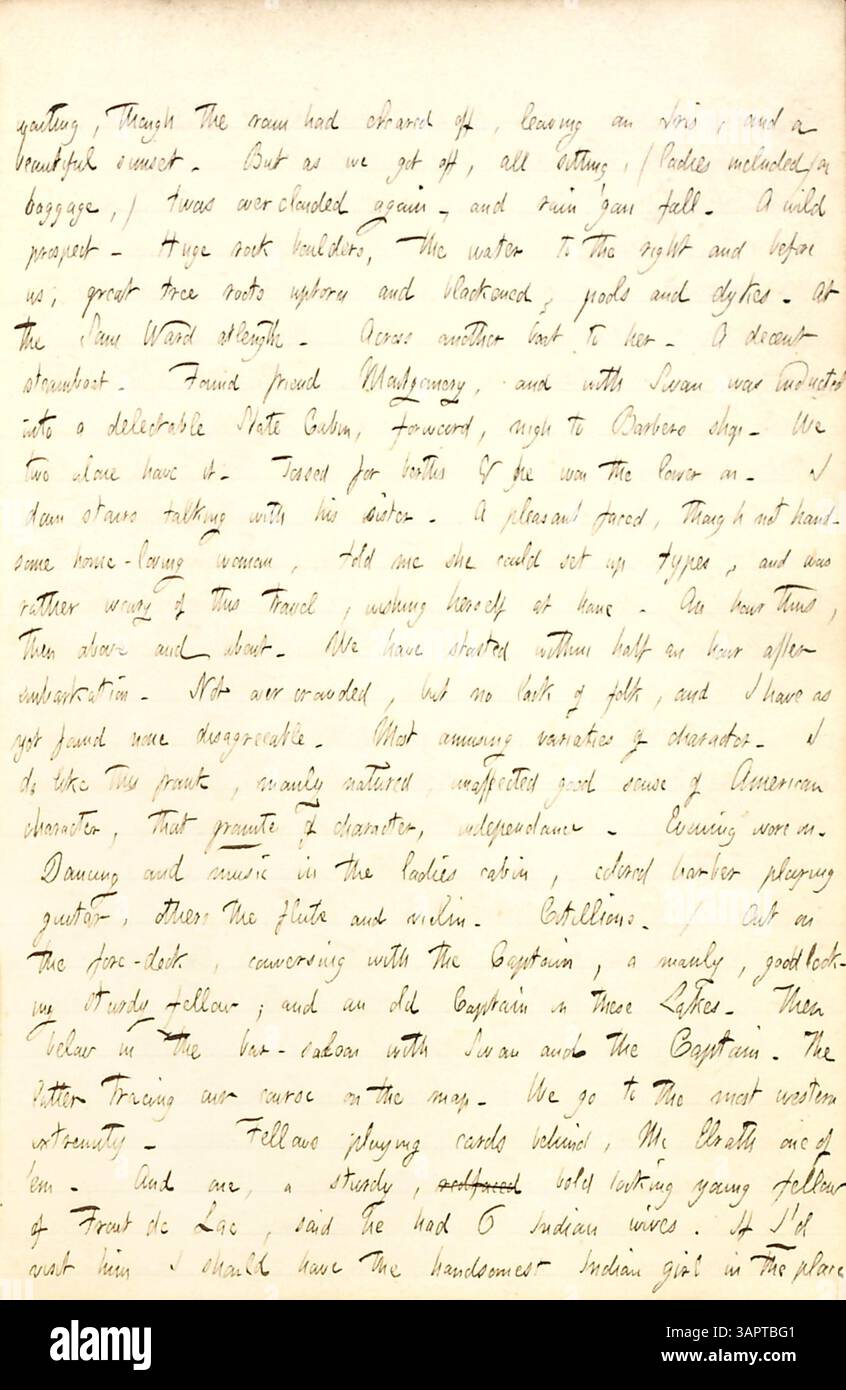 waiting, though the rain had cleared off, leaving an Iris, and a
beautiful sunset. But as we got off, all sitting, (ladies included on
baggage,) twas overclouded again, and rain 'gan fall. A wild
prospect. Huge rock boulders, the water to the right and before
us, great tree roots uptorn and blackened, pools and dykes. At
the Sam Ward at length. Across another boat to her. A decent
steamboat. Found friend Montgomery, and with Swan was inducted
into a delectable State Cabin, forward, nigh to Barbers shop. We
two alone have it. Tossed for berths & he won the lower on. I
down stairs talking with his sister. A pleasant faced, though not hand-
some home-loving woman, told me she could set up types, and was
rather weary of this travel, wishing herself at home. An hour thus,
then above and about. We have started within half an hour after
embarkation. Not over crowded, but no lack of folk, and I have as
yet found none disagreeable. Most amusing varieties of character. I
do like this frank, manly natured, unaffected good sense of American
character, that granite of character, independance. Evening wore on.
Dancing and music in the ladies cabin, colored barber playing
guitar, others the flute and violin. Cotillions. Out on
the fore-deck, conversing with the Captain, a manly, good look-
ing sturdy fellow; and an old Captain on these Lakes. Then
below in the bar-saloon with Swan and the Captain. The
latter tracing our course on the map. We go to the most western
extremity. Fellows playing cards behind, Mc Elrath one of
'em. And one, a sturdy, redfaced bold looking young fellow
of Front de Lac, said he had 6 Indian wives. If I'd
visit him I should have the handsomest Indian girl in the place
alamy
Image ID: 3APTBG1
www.alamy.com